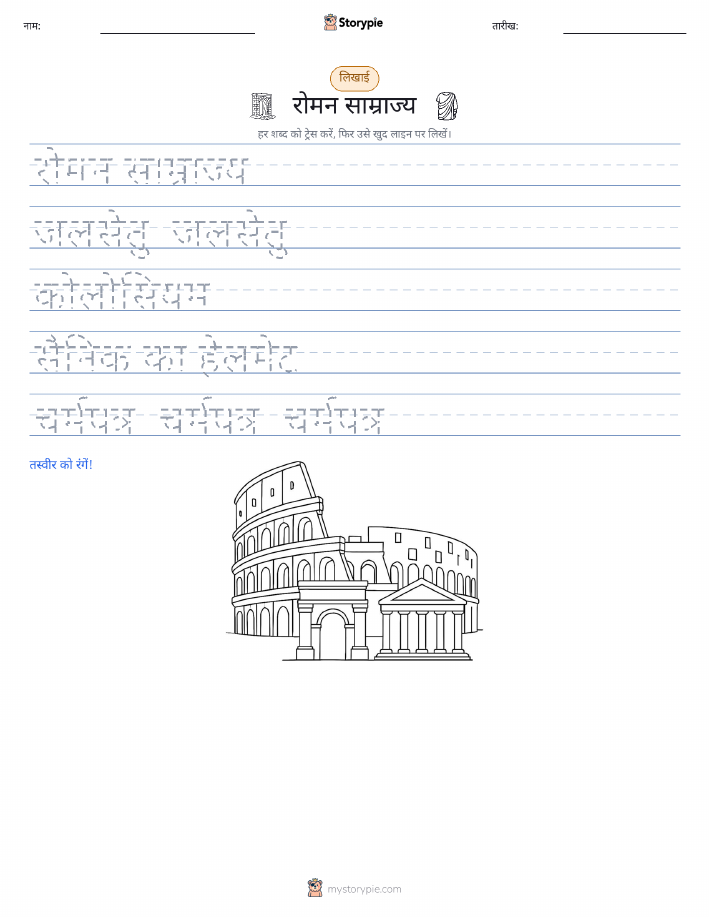 नाम:
Storypie
तारीख:
लिखाई
रोमन साम्राज्य
हर शब्द को ट्रेस करें, फिर उसे खुद लाइन पर लिखें।
रोमन साम्राज्य
जलसेतु जलसेतु
कोलोसियम
सैनिक का हेलमेट
चर्मपत्र चर्मपत्र चर्मपत्र
तस्वीर को रंगें!
mystorypie.com